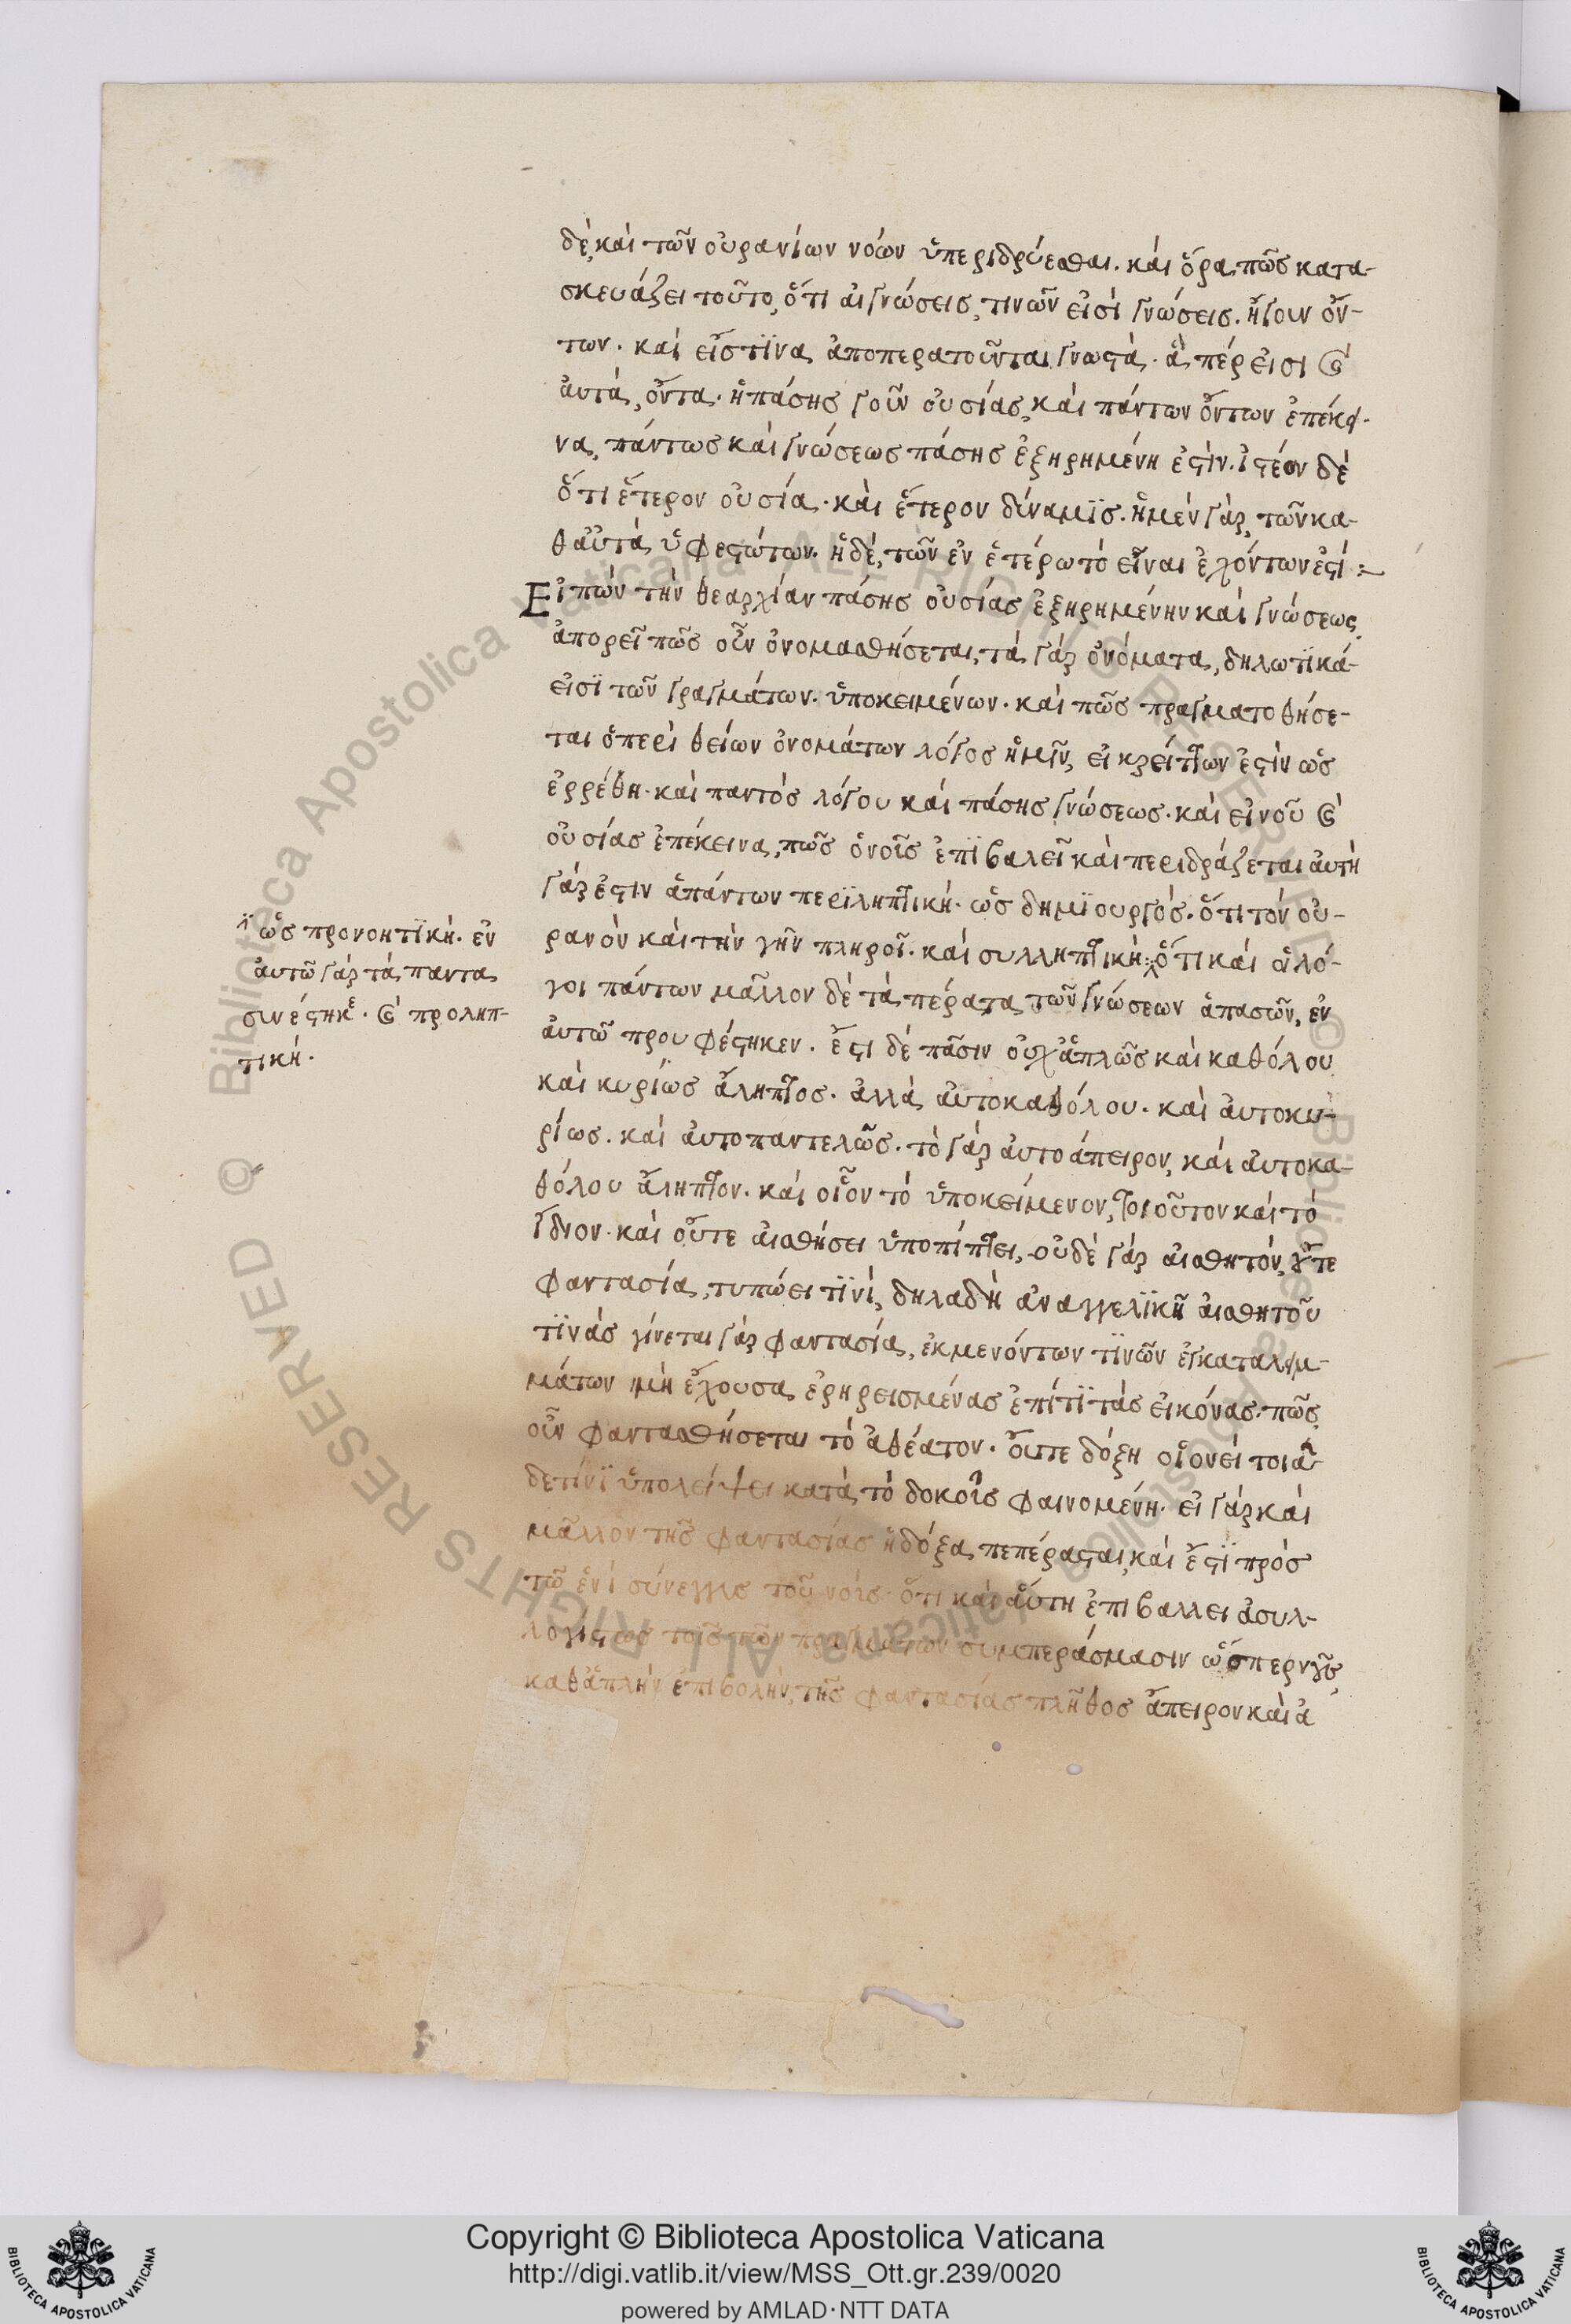 δὲ, καὶ τῶν οὐρανίων νόων ὑπεριδρύεσθαι. καὶ ὅρα πῶς κατα-
σκευάζει τοῦτο, ὅτι αἱ γνώσεις, τινῶν εἰσὶ γνώσεις. ἤγουν ὄν-
των. καὶ εἴς τϊνα ἀποπερατοῦνται γνωστά. ἅ πέρ εἰσι καὶ
αὐτὰ, ὄντα. ἡ πάσης γοῦν οὐσίας, καὶ πάντων ὄντων ἐπέκει-
να, πάντως καὶ γνώσεως πάσης ἐξηρημένη ἐστίν. ἰστέον δὲ
ὅτι ἕτερον οὐσία. καὶ ἕτερον δύναμϊς. ἡ μὲν γὰρ, τῶν κα-
θ αὑτὰ ὑφεστώτων. ἡ δὲ, τῶν ἐν ἑτέρω τὸ εἶναι ἐχόντων ἐστί:
Εἰπὼν τὴν θεαρχίαν πάσης οὐσίας ἐξηρημένην καὶ γνώσεως
ἀπορεῖ πῶς οὖν ὀνομασθήσεται, τὰ γὰρ ὀνόματα, δηλωτϊκά
εἰσϊ τῶν πραγμάτων. ὑποκειμένων. καὶ πῶς πραγματοθήσε-
ται ὁ περὶ θείων ὀνομάτων λόγος ἡμῖν, εἰ κρείττων ἐστὶν ὡς
ἐρρέθη. καὶ παντὸς λόγου καὶ πάσης γνώσεως. καὶ εἰ νοῦ καὶ
οὐσίας ἐπέκεινα, πῶς ὁ νοῦς ἐπϊβαλεῖ καὶ περιδράξεται αὐτὴ
γάρ ἐστιν ἁπάντων περϊληπτική. ὡς δημϊουργός. ὅτι τὸν οὐ-
ρανὸν καὶ τὴν γῆν πληροῖ. καὶ συλληπτική: ὅτι καὶ οἱ λό-
γοι πάντων μᾶλλον δὲ τὰ πέρατα τῶν γνώσεων ἁπασῶν, ἐν
αὐτῶ προυφέστηκεν. ἔστι δὲ πᾶσιν οὐχ ἁπλῶς καὶ καθόλου
καὶ κυρίως ἄληπτος. ἀλλὰ αὐτοκαθόλου. καὶ αὐτοκυ-
ρίως. καὶ αὐτοπαντελῶς. τὸ γὰρ αὐτοάπειρον, καὶ αὐτοκα-
θόλου ἄληπτον. καὶ οἷον τὸ ὑποκείμενον, τοιοῦτον καὶ τὸ
ἴδιον. καὶ οὔτε αἰσθήσει ὑποπίπτει, οὐδὲ γὰρ αἰσθητόν, οὔτε
φαντασία, τυπώσει τϊνὶ, δηλαδὴ ἀναγγελϊκῆ αἰσθητοῦ
τϊνός γίνεται γὰρ φαντασία, ἐκ μενόντων τϊνῶν ἐγκαταλειμ-
μάτων μὴ ἔχουσα ἐρηρεισμένας ἐπί τϊ τὰς εἰκόνας. πῶς
οὖν φαντασθήσεται τὸ ἀθέατον. οὔτε δόξη οἱονεὶ τοιᾶ-
δε τινῒ ὑπολείψει κατὰ τὸ δοκοῦν φαινομένη. εἰ γὰρ καὶ
μᾶλλον τῆς φαντασίας ἡ δόξα πεπέρασται, καὶ ἔστϊ πρὸς
τῶ ἑνὶ σύνεγγυς τοῦ νοός. ὅτι καὶ αὕτη ἐπιβαλλει ἀσυλ-
λογίστως τοῖς τῶν πραγμάτων συμπεράσμασιν ὥσπερ νοῦς
καθ ἁπλὴν ἐπιβολὴν, τῆς φαντασίας πλῆθος ἄπειρον καὶ ἀ
ὡς προνοητϊκή. ἐν
αὐτῶ γὰρ τὰ παντα
συνέστηκε. καὶ προληπ-
τική.
© Biblioteca Apostolica Vaticana ALL RIGHTS RESERVED
© Biblioteca Apostolica Vaticana ALL RIGHTS RESERVED
Copyright © Biblioteca Apostolica Vaticana
http://digi.vatlib.it/view/MSS_Ott.gr.239/0020
powered by AMLAD·NTT DATA
BIBLIOTECA APOSTOLICA VATICANA
BIBLIOTECA APOSTOLICA VATICANA